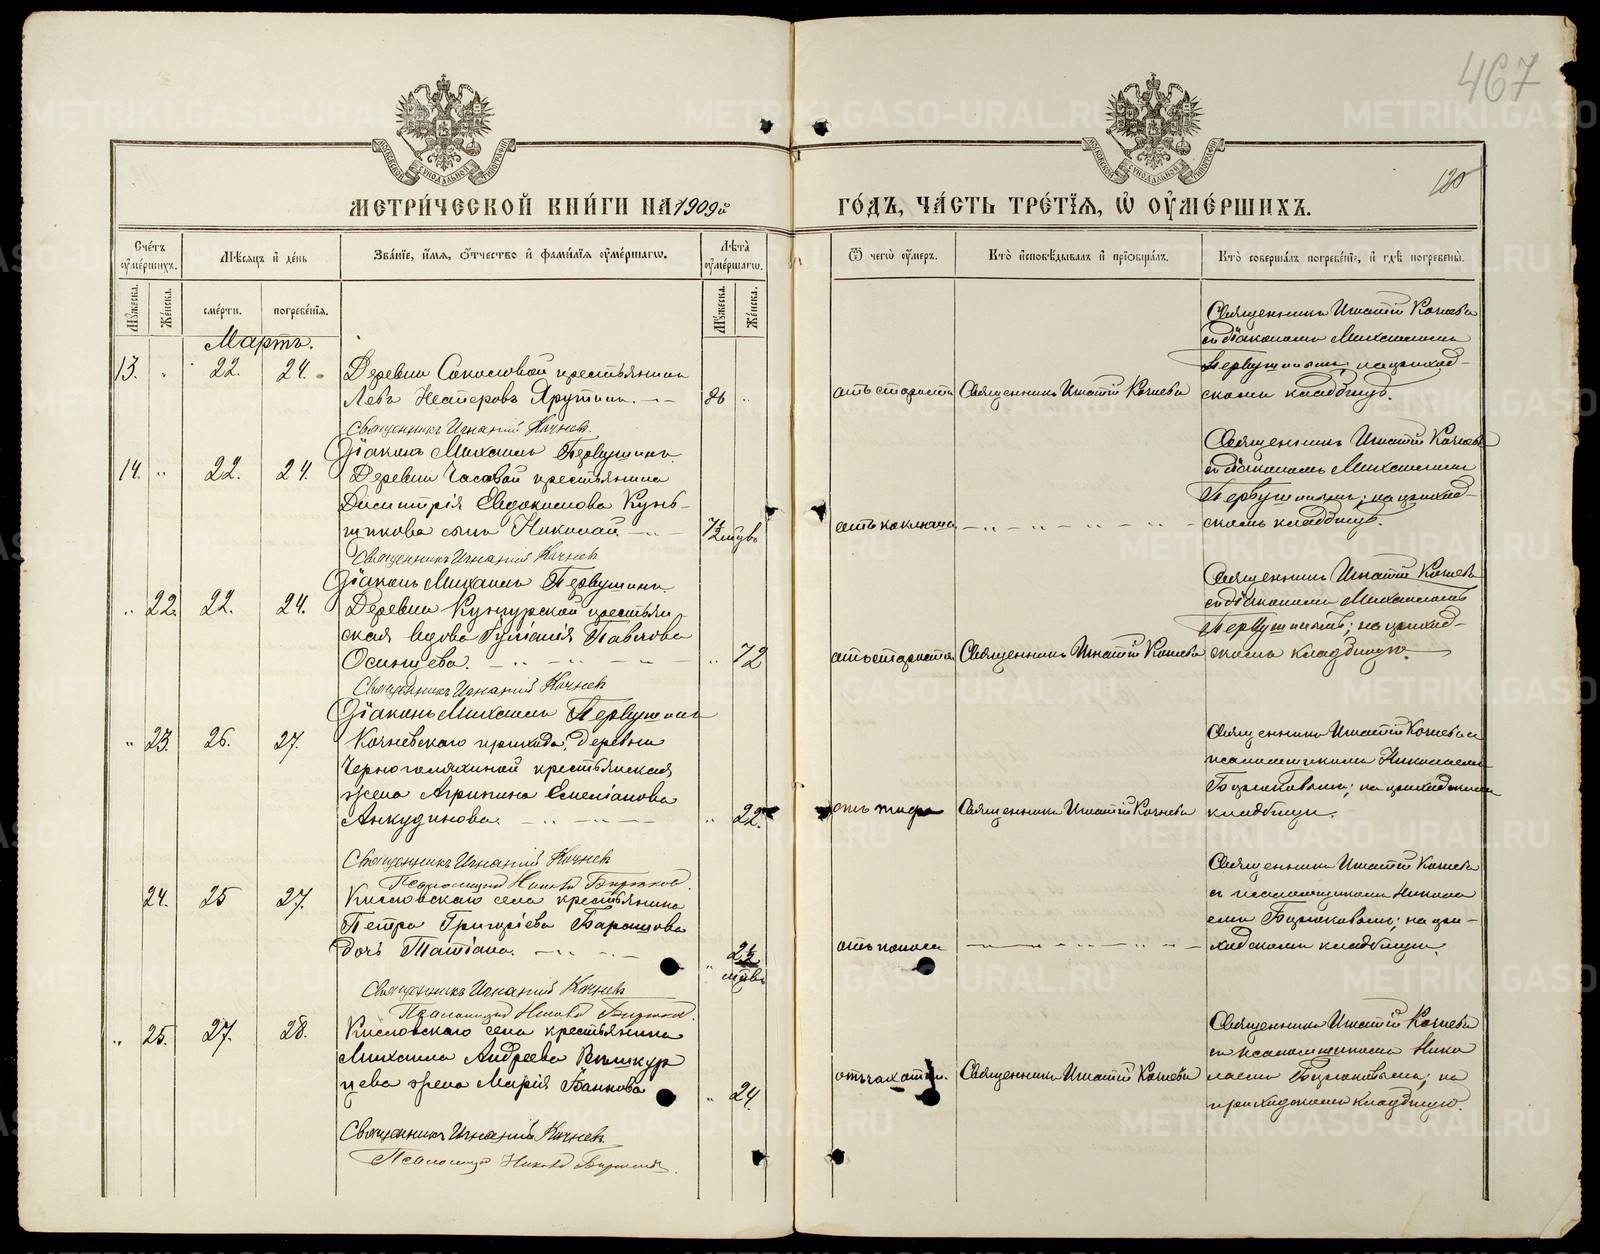 467
120
МЕТРИЧЕСКОЙ КНИГИ НА 1909й
ГОДЪ, ЧАСТЬ ТРЕТІЯ, Ѡ ОУМЕРШИХЪ.
Счетъ оумершихъ.
Мѣсяцъ и день
Званіе, имя, отчество и фамилія оумершагѡ.
Лѣта оумершагѡ.
Ѿ чегѡ оумеръ.
Кто исповѣдывалъ и пріобщалъ.
Кто совершалъ погребеніе, и гдѣ погребены.
Мужеска.
Женска.
смерти.
погребенія.
Мужеска.
Женска.
Мартъ.
13. 22. 24. Деревни Соколовой крестьянинъ
Левъ Ярутинъ. 86 отъ старости Священникъ Игнатій Кочневъ
Священникъ Игнатій Кочневъ
съ діакономъ Михаиломъ
Первушинымъ; на приход-
скомъ кладбищѣ.
Священникъ Игнатій Кочневъ.
Діаконъ Михаилъ Первушинъ.
14. 22. 24. Деревни Часовой крестьянина
Димитрія Евдокимова
сынъ Николай отъ коклюша
Священникъ Игнатій Кочневъ
съ діакономъ Михаиломъ
Первушинымъ; на приход-
скомъ кладбищѣ.
Священникъ Игнатій Кочневъ
Діаконъ Михаилъ Первушинъ.
22. 22. 24. Деревни Кунгурской крестьян-
ская вдова Іуліанія Павлова
Осинцева. 72 отъ старости Священникъ Игнатій Кочневъ
Священникъ Игнатій Кочневъ
съ діакономъ Михаиломъ
Первушинымъ; на приход-
скомъ кладбищѣ.
Священникъ Игнатій Кочневъ
Діаконъ Михаилъ Первушинъ
23. 26. 27. Кочневскаго прихода, деревни
Черноголяхиной крестьянская
жена Агрипина Емеліанова
Анкудинова. 22. отъ тифа Священникъ Игнатій Кочневъ
Священникъ Игнатій Кочневъ и
псаломщикомъ Николаемъ
Бирюковымъ; на приходскомъ
кладбищѣ.
Священникъ Игнатій Кочневъ
Псаломщикъ Николай Бирюков.
24. 25 27. Кисловскаго села крестьянина
Петра Григоріева
дочь Татіана. отъ поноса
Священникъ Игнатій Кочневъ
съ псаломщикомъ Никола
емъ Бирюковымъ; на при-
ходскомъ кладбищѣ.
Священникъ Игнатій Кочневъ
Псаломщикъ Николай Бирюков.
25. 27. 28. Кисловскаго села крестьянина
Михаила Андреева Вышкур
цева жена Марія 24. отъ чахотки. Священникъ Игнатій Кочневъ
Священникъ Игнатій Кочневъ
съ псаломщикомъ Нико
лаемъ Бирюковымъ; на
приходскомъ кладбищѣ.
Священникъ Игнатій Кочневъ
Псаломщикъ Николай Бирюков.
METRIKI.GASO-URAL.RU